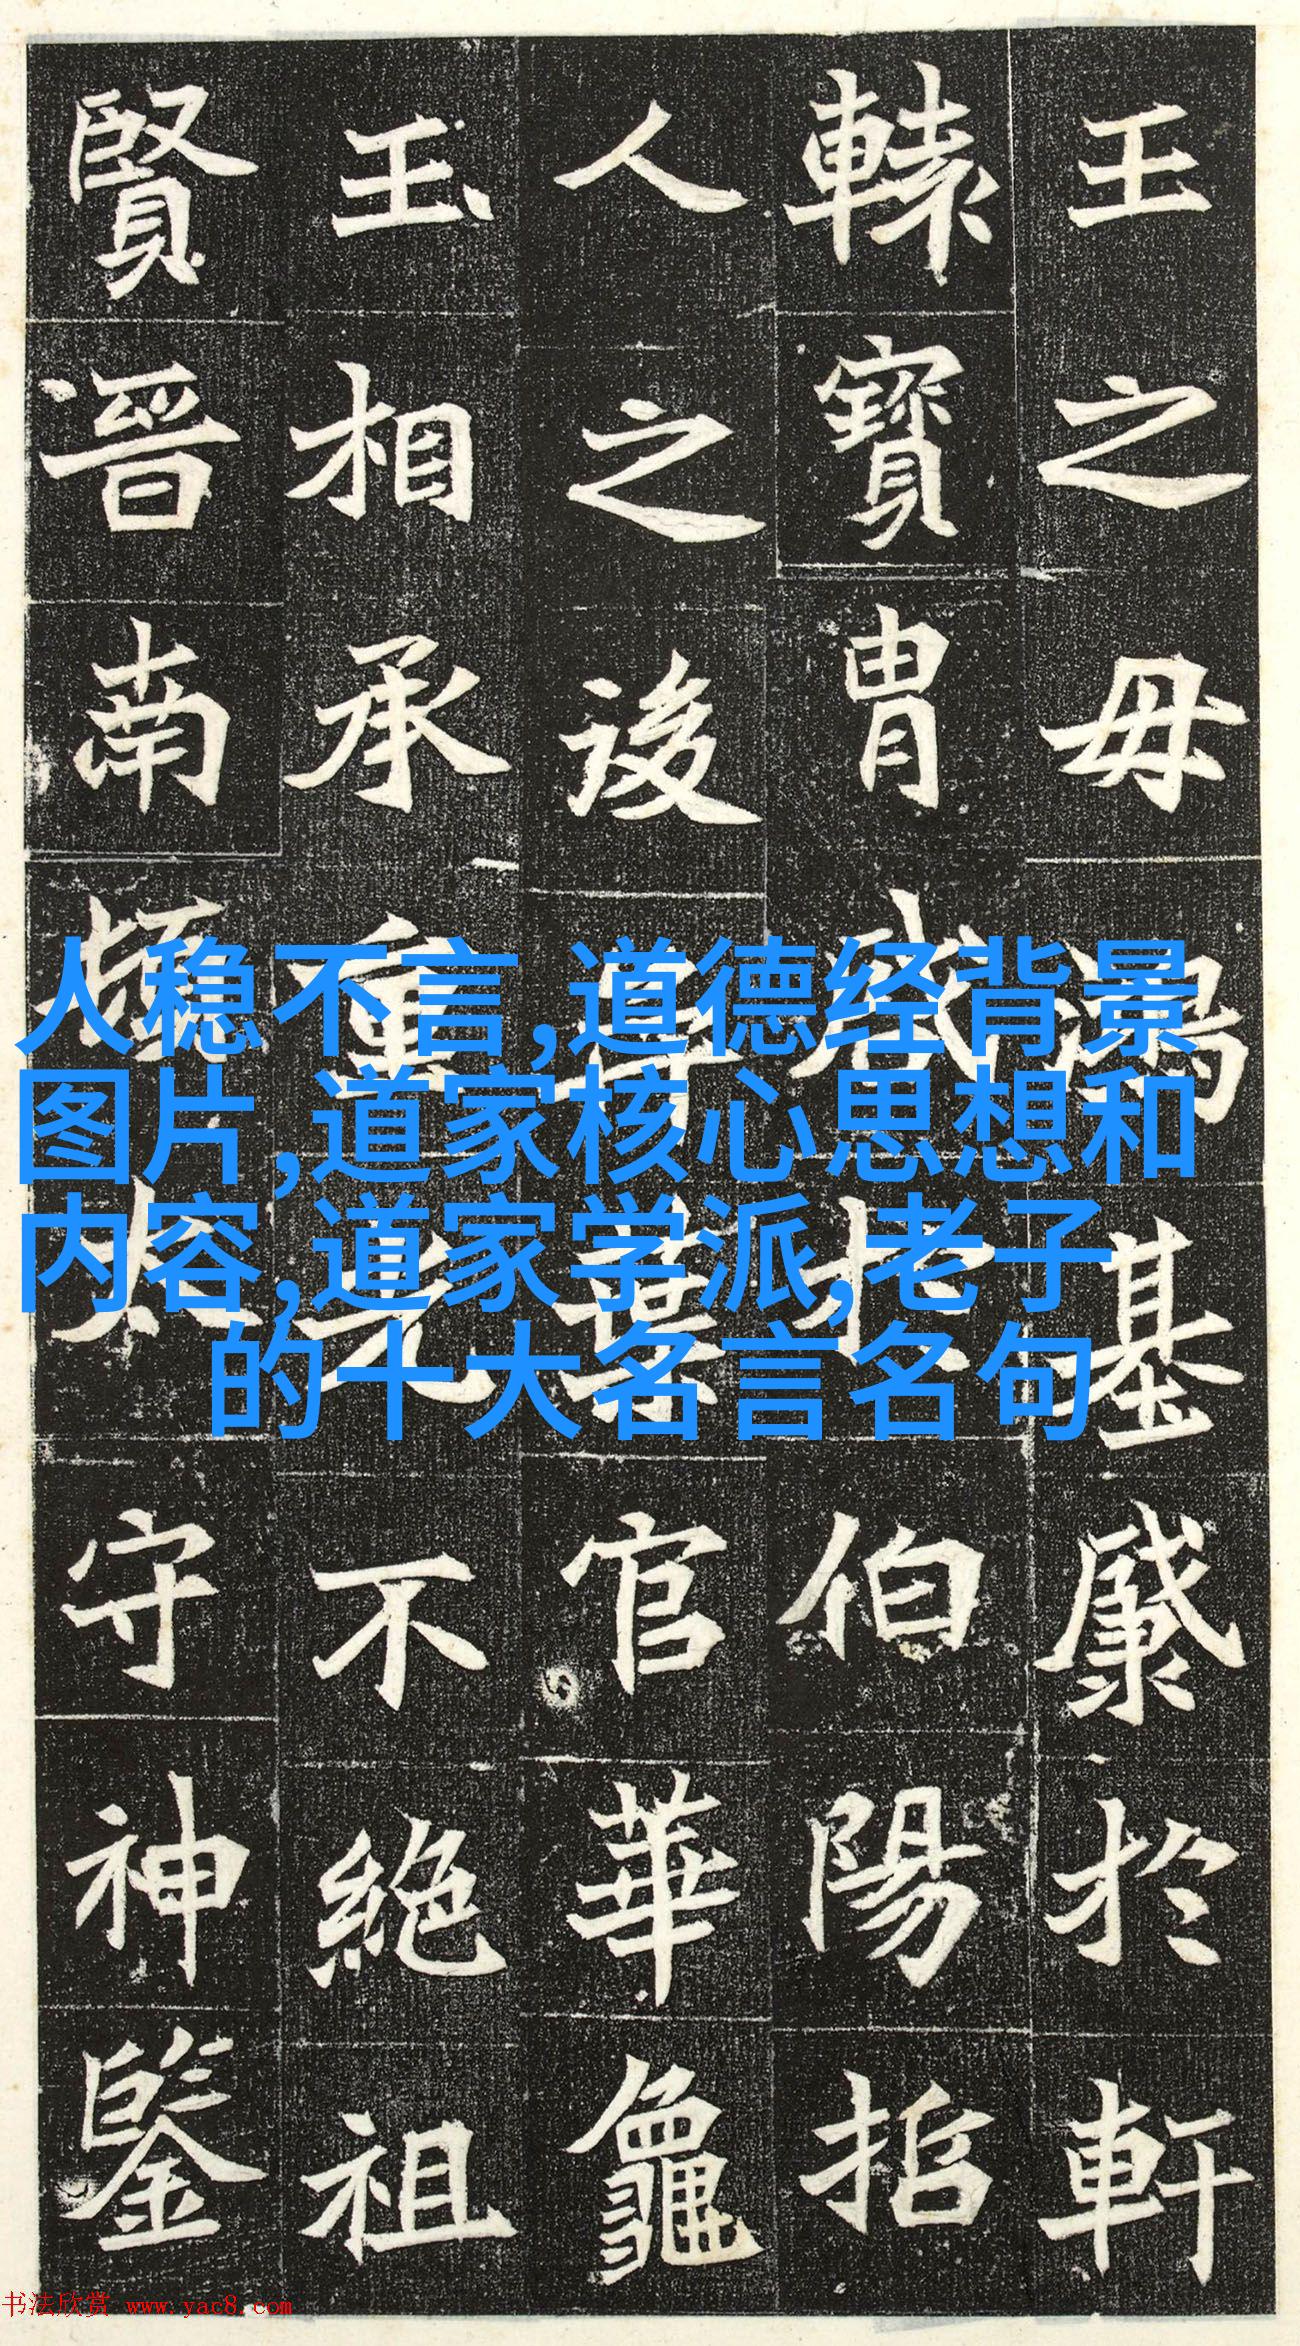 王之母鴻基於軒
轅寶胄於伯陽指
人之後葉官華龜
玉相承重光不絕祖
賢晉南頓太守神鑒
人稳不言,道德经背景
图片,道家核心思想和
内容,道家学派,老子
的十大名言名句
书法欣赏 www.yac8.com